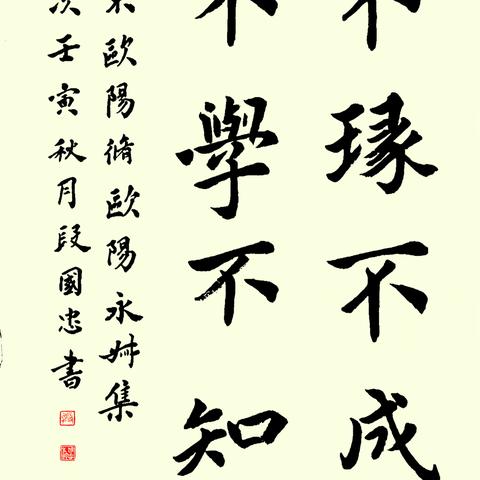 不琢不成
不學不知
歐陽脩歐陽永叔集
次壬寅秋月段國忠書